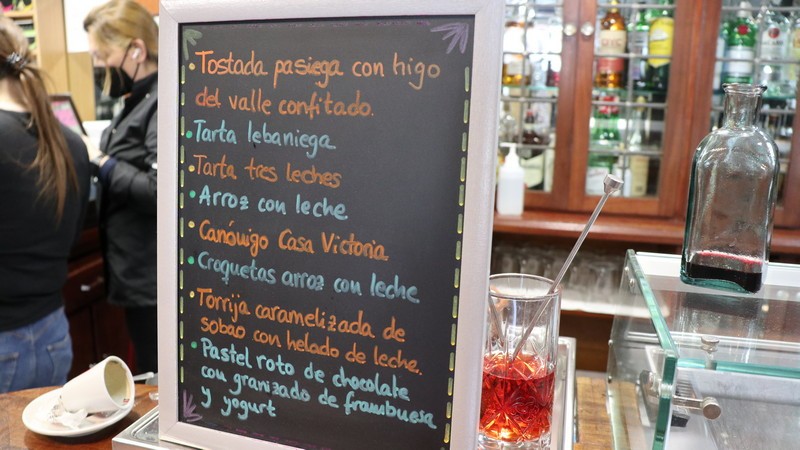 Tostada pasiega con higo
del valle confitado.
Tarta lebaniega
Tarta tres leches
Arroz con leche
Canónigo Casa Victoria
Croquetas arroz con leche
Torrija caramelizada de
sobao con helado de leche.
Pastel roto de chocolate
con granizado de frambuesa
y yogurt